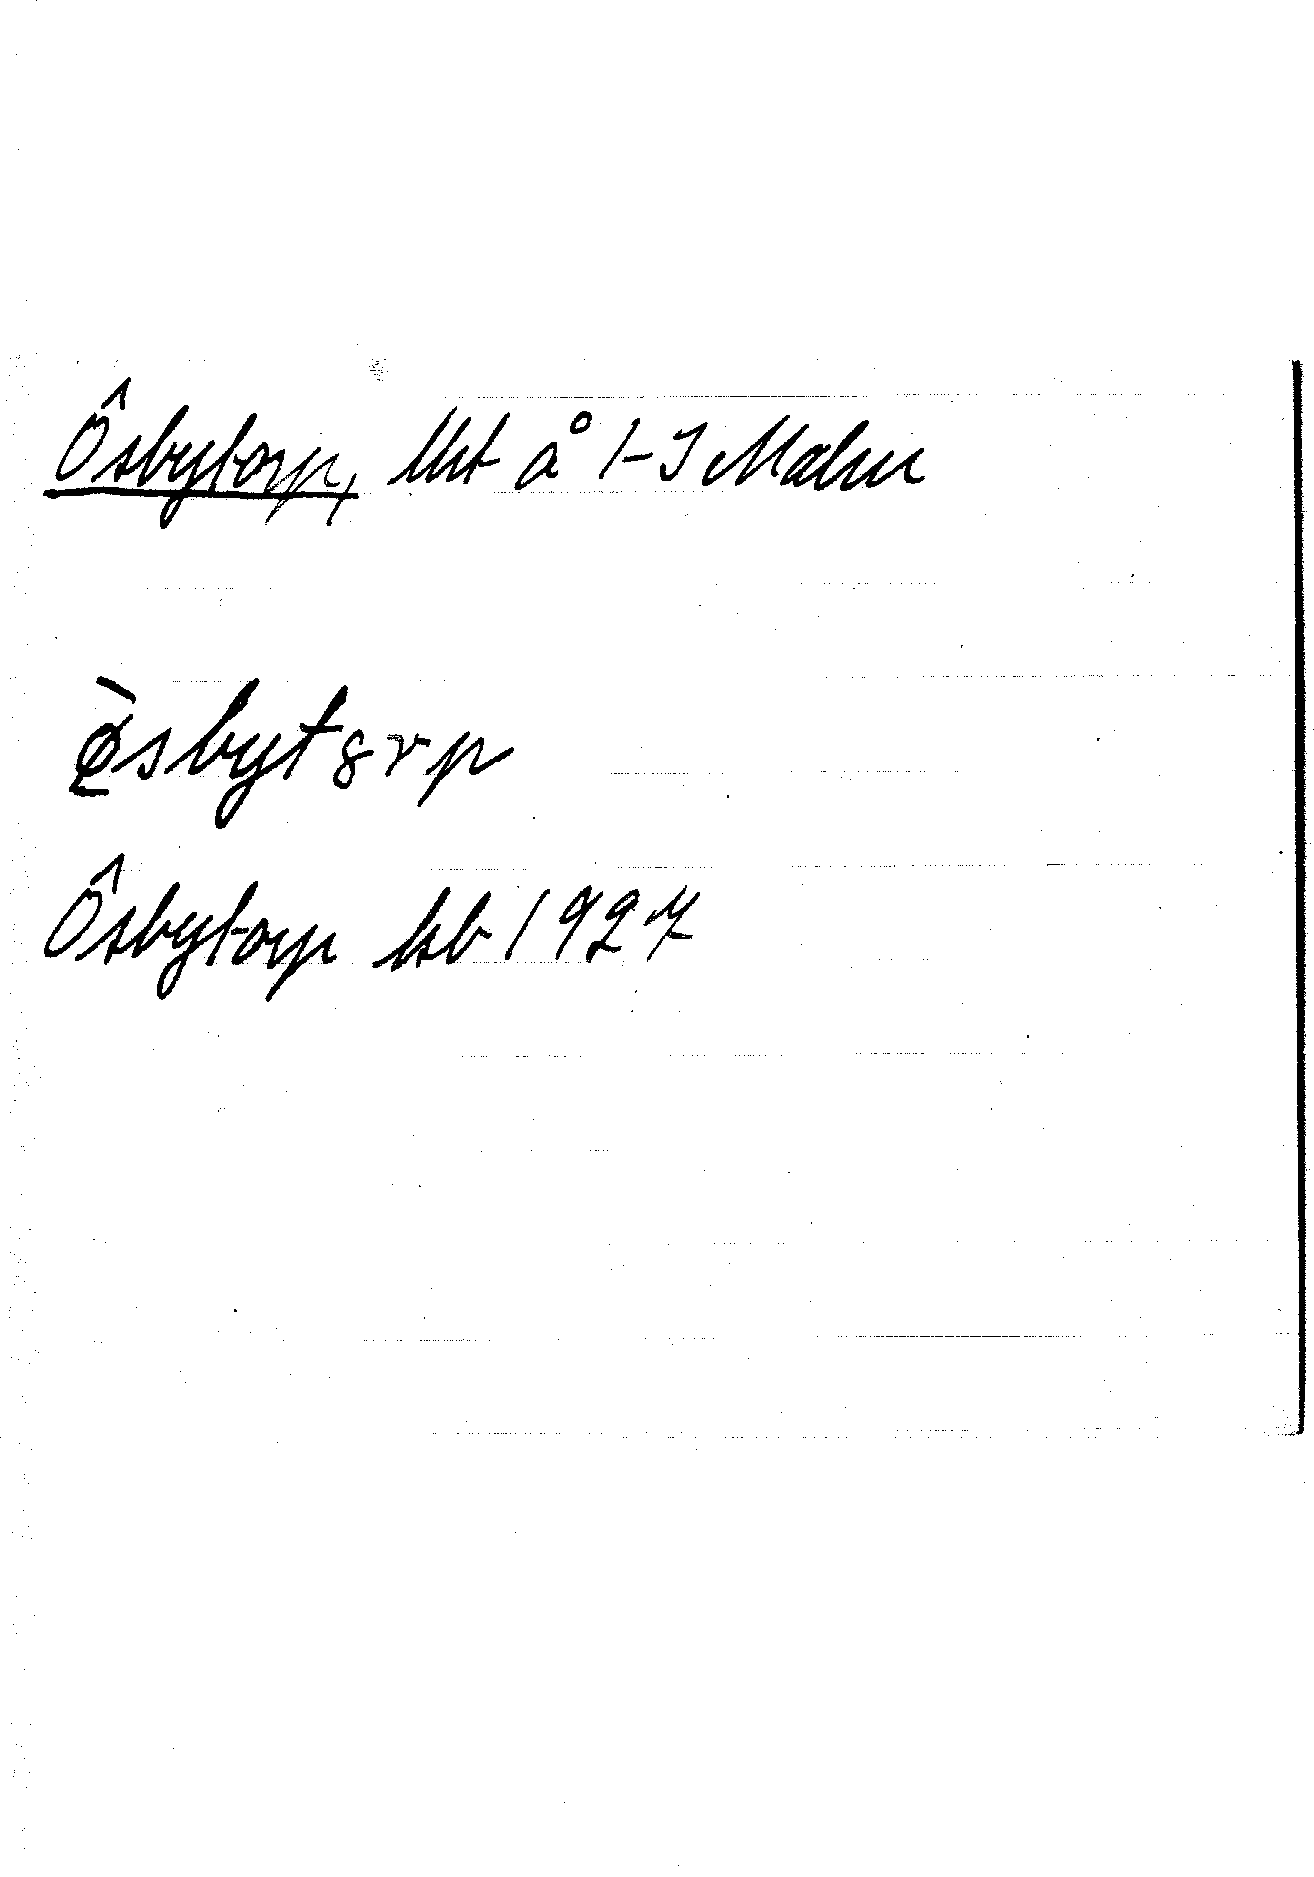 Ôsbytorp, lht å 1-3 Malm
ø̀sbytꝋrp
Ôsbytorp kb 1927